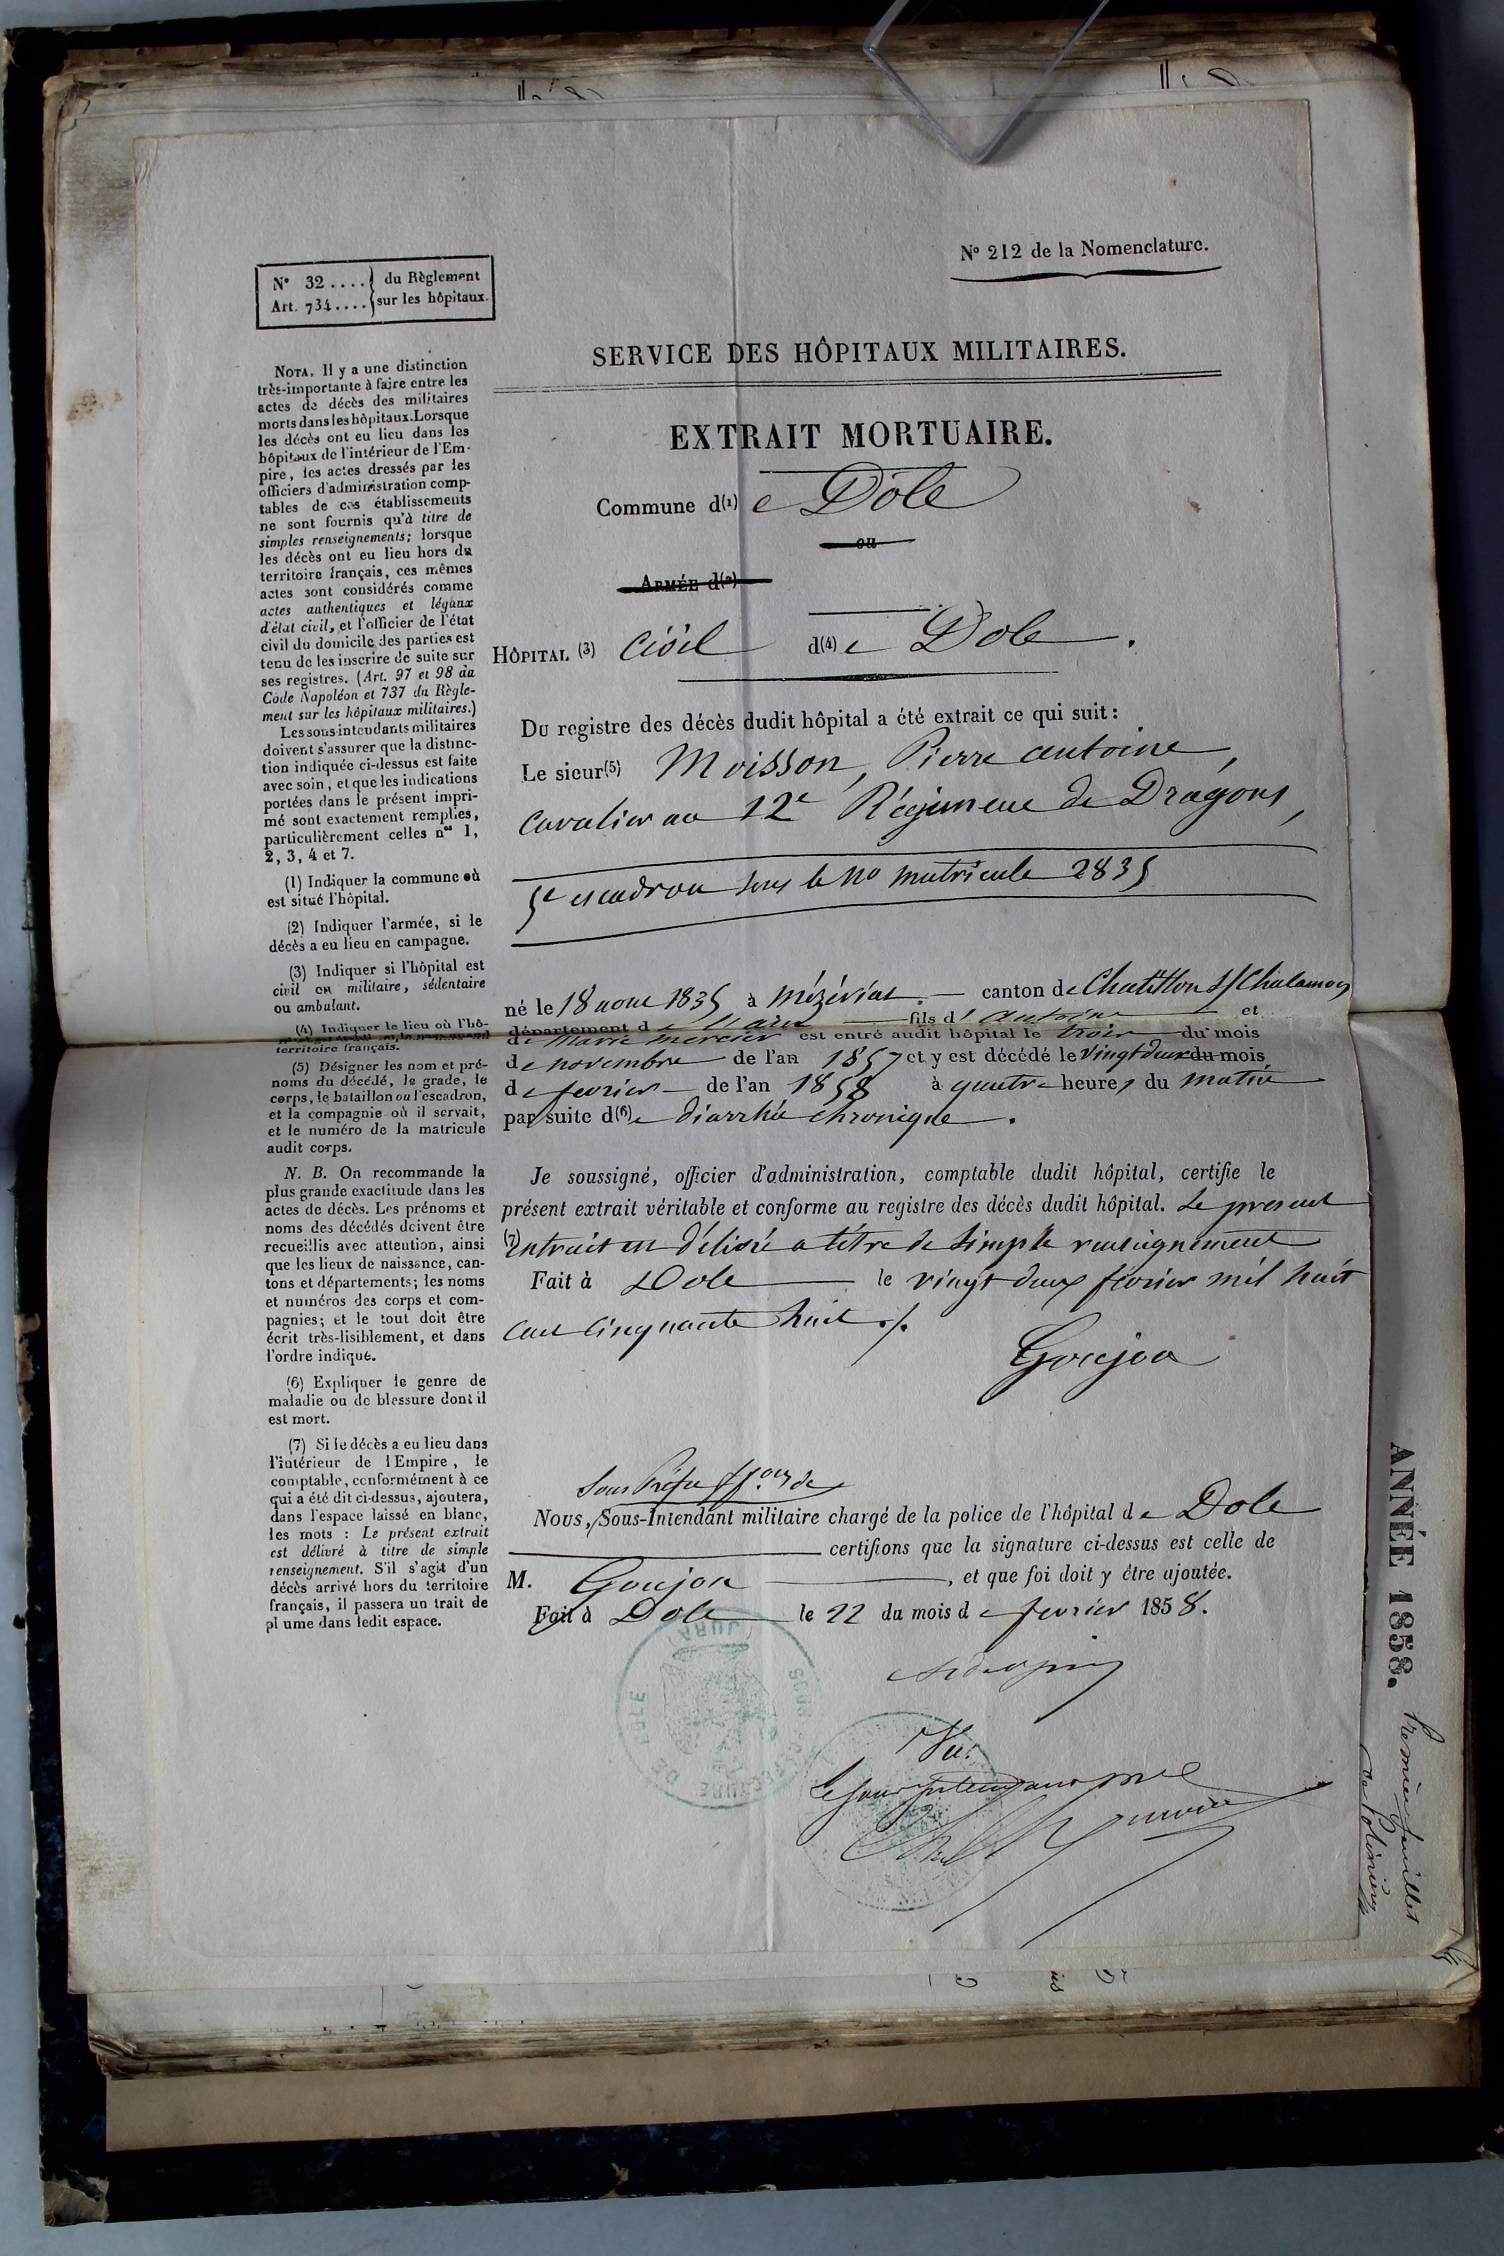 N° 212 de la Nomenclature.
N° 32.... du Règlement
Art. 734.... sur les hôpitaux.
SERVICE DES HÔPITAUX MILITAIRES.
EXTRAIT MORTUAIRE.
Commune d(1) e Dôle
ou
ARMÉE d(2)
HÔPITAL (3) Civil d(4) e Dole.
Du registre des décès dudit hôpital a été extrait ce qui suit:
Le sieur(5) Moisson, Pierre antoine,
Cavalier au 12e Régiment de Dragons,
5e escadron sous le No matricule 2835
né le 18 aout 1835 à Mézériat. canton de Chatillon s/ Chalamon
département d e l'ain fils d' Antoine et
de Marie Mercier est entré audit hôpital le trois du mois
de novembre de l'an 1857 et y est décédé le vingt deux du mois
de fevrier de l'an 1858 à quatre heures du matin
par suite d(6) e diarrhée chronique.
Je soussigné, officier d'administration, comptable dudit hôpital, certifie le
présent extrait véritable et conforme au registre des décès dudit hôpital. Le present
(7) Extrait est délivré a titre de simple renseignement
Fait à Dole le vingt deux février mil huit
cent cinquante huit ./.
Goujon
Sous Préfet ff.ons de
Nous, Sous-Intendant militaire chargé de la police de l'hôpital d e Dole
certifions que la signature ci-dessus est celle de
M. Goujon, et que foi doit y être ajoutée.
Fait à Dole le 22 du mois d e fevrier 1858.
SOUS PRÉFECTURE DE DOLE (JURA)
Vu:
Le sous intendant mre
NOTA. Il y a une distinction
très-importante à faire entre les
actes de décès des militaires
morts dans les hôpitaux. Lorsque
les décès ont eu lieu dans les
hôpitaux de l'intérieur de l'Em-
pire, les actes dressés par les
officiers d'administration comp-
tables de ces établissements
ne sont fournis qu'à titre de
simples renseignements; lorsque
les décès ont eu lieu hors du
territoire français, ces mêmes
actes sont considérés comme
actes authentiques et légaux
d'état civil, et l'officier de l'état
civil du domicile des parties est
tenu de les inscrire de suite sur
ses registres. (Art. 97 et 98 du
Code Napoléon et 737 du Règle-
ment sur les hôpitaux militaires.)
Les sous-intendants militaires
doivent s'assurer que la distinc-
tion indiquée ci-dessus est faite
avec soin, et que les indications
portées dans le présent impri-
mé sont exactement remplies,
particulièrement celles nos 1,
2, 3, 4 et 7.
(1) Indiquer la commune où
est situé l'hôpital.
(2) Indiquer l'armée, si le
décès a eu lieu en campagne.
(3) Indiquer si l'hôpital est
civil ou militaire, sédentaire
ou ambulant.
(4) Indiquer le lieu où l'hô-
territoire français.
(5) Désigner les nom et pré-
noms du décédé, le grade, le
corps, le bataillon ou l'escadron,
et la compagnie où il servait,
et le numéro de la matricule
audit corps.
N. B. On recommande la
plus grande exactitude dans les
actes de décès. Les prénoms et
noms des décédés doivent être
recueillis avec attention, ainsi
que les lieux de naissance, can-
tons et départements; les noms
et numéros des corps et com-
pagnies; et le tout doit être
écrit très-lisiblement, et dans
l'ordre indiqué.
(6) Expliquer le genre de
maladie ou de blessure dont il
est mort.
(7) Si le décès a eu lieu dans
l'intérieur de l'Empire, le
comptable, conformément à ce
qui a été dit ci-dessus, ajoutera,
dans l'espace laissé en blanc,
les mots : Le présent extrait
est délivré à titre de simple
renseignement. S'il s'agit d'un
décès arrivé hors du territoire
français, il passera un trait de
plume dans ledit espace.
ANNÉE 1858.
Premier feuillet